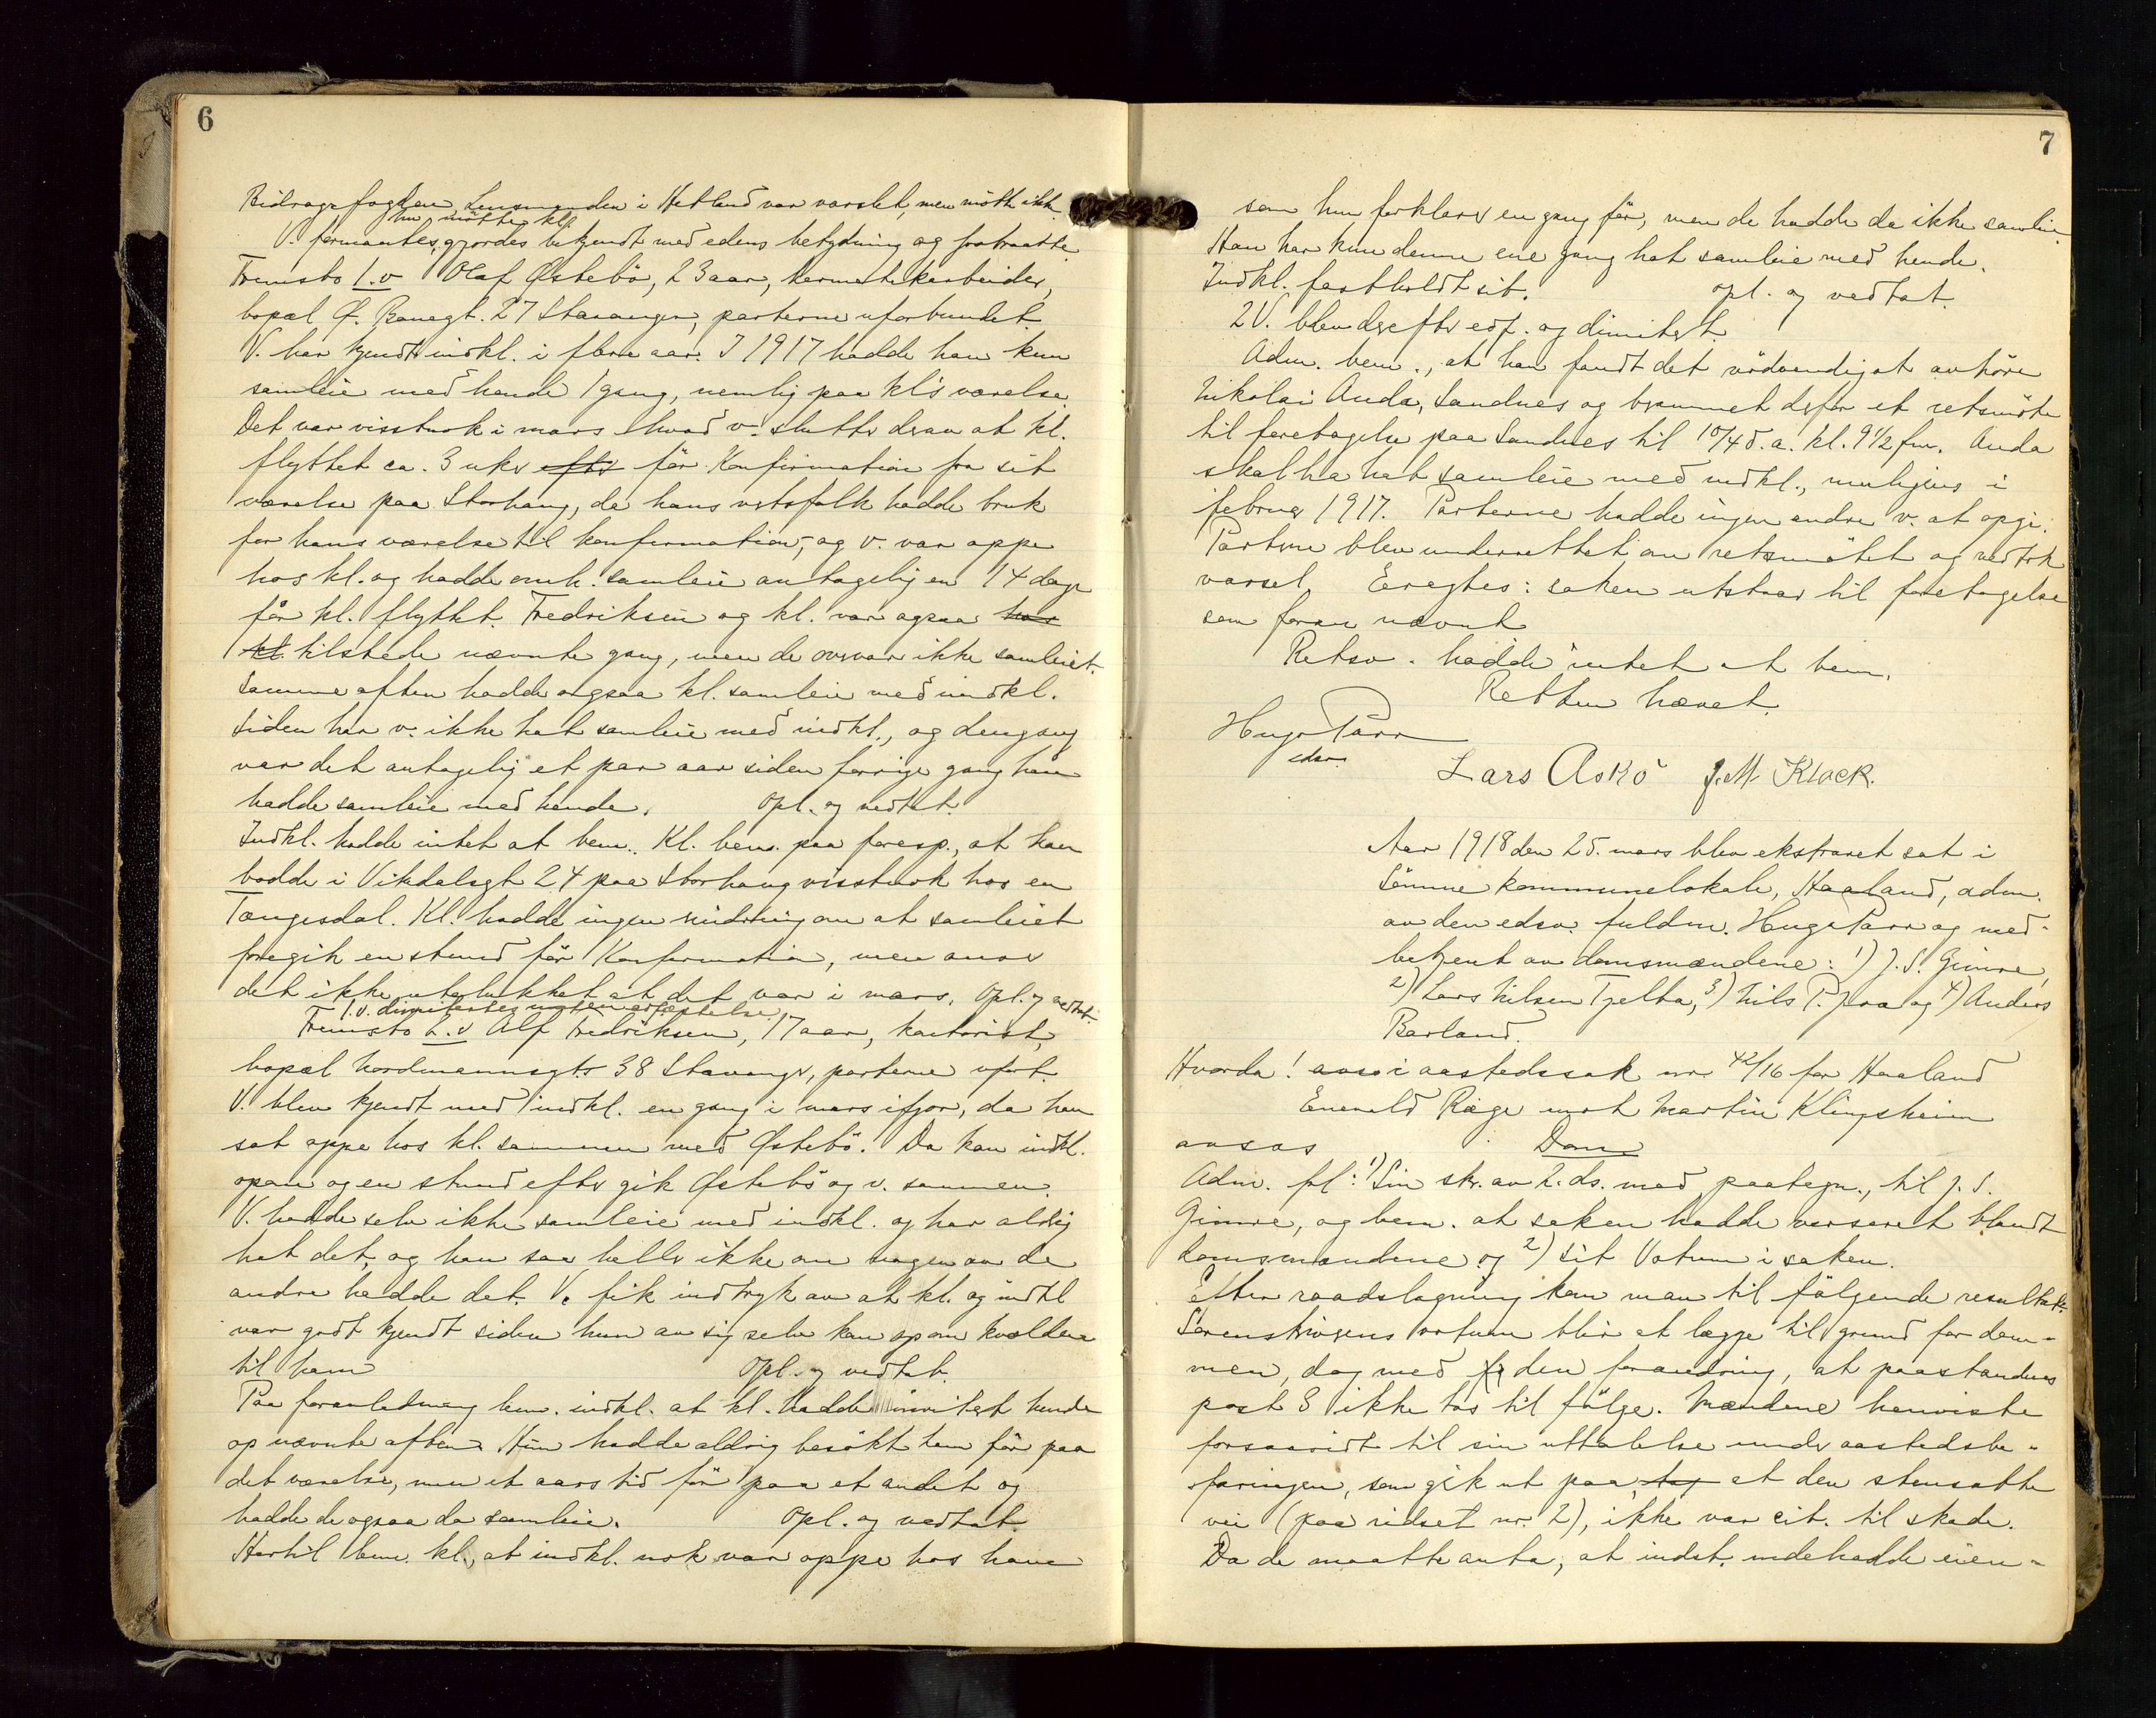 6
Bidragsfogden Lensmanden i Hetland var varslet, men møtte ikke.
nu møtte kl.
V. formantes, gjordes bekjendt med edens betydning og foretraatte
Fremsto 1.v Olaf Østebö, 23 aar, hermetikarbeider,
bopæl Ø. Banegt. 27 Stavanger, parterne uforbundet.
V. har kjendt indkl. i flere aar. I 1917 hadde han kun
samleie med hende 1 gang, nemlig paa kl's værelse.
Det var visstnok i mars hvad v. slutter derav at kl.
flyttet ca. 3 uker efter för Konfirmation fra sit
værelse paa Storhaug, da hans vertsfolk hadde bruk
for hans værelse til konfirmation, og v. var oppe
hos kl. og hadde omh. samleie antagelig en 14 dage
för kl. flyttet. Fredriksen og kl. var ogsaa hos
kl. tilstede nævnte gang, men de overvar ikke samleiet.
Samme aften hadde ogsaa kl. samleie med indkl.
Siden har v. ikke hat samleie med indkl., og dengang
var det antagelig et par aar siden forrige gang han
hadde samleie med hende. Opl. og vedtat.
Indkl. hadde intet at bem. Kl. bem. paa foresp., at han
bodde i Vikdalsgt 24 paa Storhaug visstnok hos en
Tængesdal. Kl. hadde ingen erindring om at samleiet
foregik en stund för Konfirmation, men anser
det ikke utelukket at det var i mars. Opl. og vedtat.
1.v. dimitertes uten edfæstelse.
Fremsto 2.v Alf Fredriksen, 17 aar, kontorist,
bopæl Nordmannsgt. 38 Stavanger, parterne uforb.
V. blev kjendt med indkl. en gang i mars ifjor, da han
sat oppe hos kl. sammen med Østebö. Da kom indkl.
opom og en stund efter gik Østebö og v. sammen.
V. hadde selv ikke samleie med indkl. og har aldrig
hat det, og han saa heller ikke om nogen av de
andre hadde det. V. fik indtryk av at kl. og indkl
var godt kjendt siden hun av sig selv kom opom kvelden
til ham Opl. og vedtat.
Paa foranledning bem. indkl. at kl. hadde invitert hende
op nævnte aften. Hun hadde aldrig besökt ham för paa
det værelse, men et aars tid för paa et andet og
hadde de ogsaa da samleie. Opl. og vedtat.
Hertil bem. kl., at indkl. nok var oppe hos ham
7
som hun forklarer en gang för, men de hadde da ikke samleie
Han har kun denne ene gang hat samleie med hende.
Indkl. fastholdt sit. Opl. og vedtat.
2V. blev derefter edf. og dimitert.
Adm. bem., at han fandt det nödvendigt at avhöre
Nikolai Auda, Sandnes og berammet derfor et retsmöte
til foretagelse paa Sandnes til 10/4 d.a. kl. 9 1/2 fm. Auda
skal ha hat samleie med indkl., muligens i
februar 1917. Parterne hadde ingen andre v. at opgi.
Parterne blev underrettet om retsmötet og vedtok
varsel. Eragtes: saken utstaar til foretagelse
som foran nævnt
Retsv. hadde intet at bem.
Retten hævet.
Hugo Parr
edsv.
Lars Askö J. M. Klock.
Aar 1918 den 25. mars blev ekstraret sat i
Sömme kommunelokale, Haaland, adm.
av den edsv. fuldm. Hugo Parr og med-
betjent av domsmændene: 1) J. S. Gimre,
2) Lars Nilsen Tjelta, 3) Nils P. Joa og 4) Anders
Rærland.
Hvorda! avsa i aastedssak nr. 42/16 for Haaland
Enevald Ræge mot Martin Klingsheim
avsas Dom
Adm. frl: 1) Sin skr. av 2. ds. med paategn., til J. S.
Gimre, og bem. at saken hadde versert blandt
domsmændene og 2) sit Votum i saken.
Efter raadslagning kom man til fölgende resultat.
Sorenskrivens votum blir at lægge til grund for dom-
men, dog med fr den forandring, at paastandens
post 3 ikke tas til fölge. Mændene henviste
forsaavidt til sin uttalelse under aastedsbe-
faringen, som gik ut paa, at den stensatte
vei (paa ridset nr. 2), ikke var cit. til skade.
Da de maatte anta, at indst. indehadde eien-